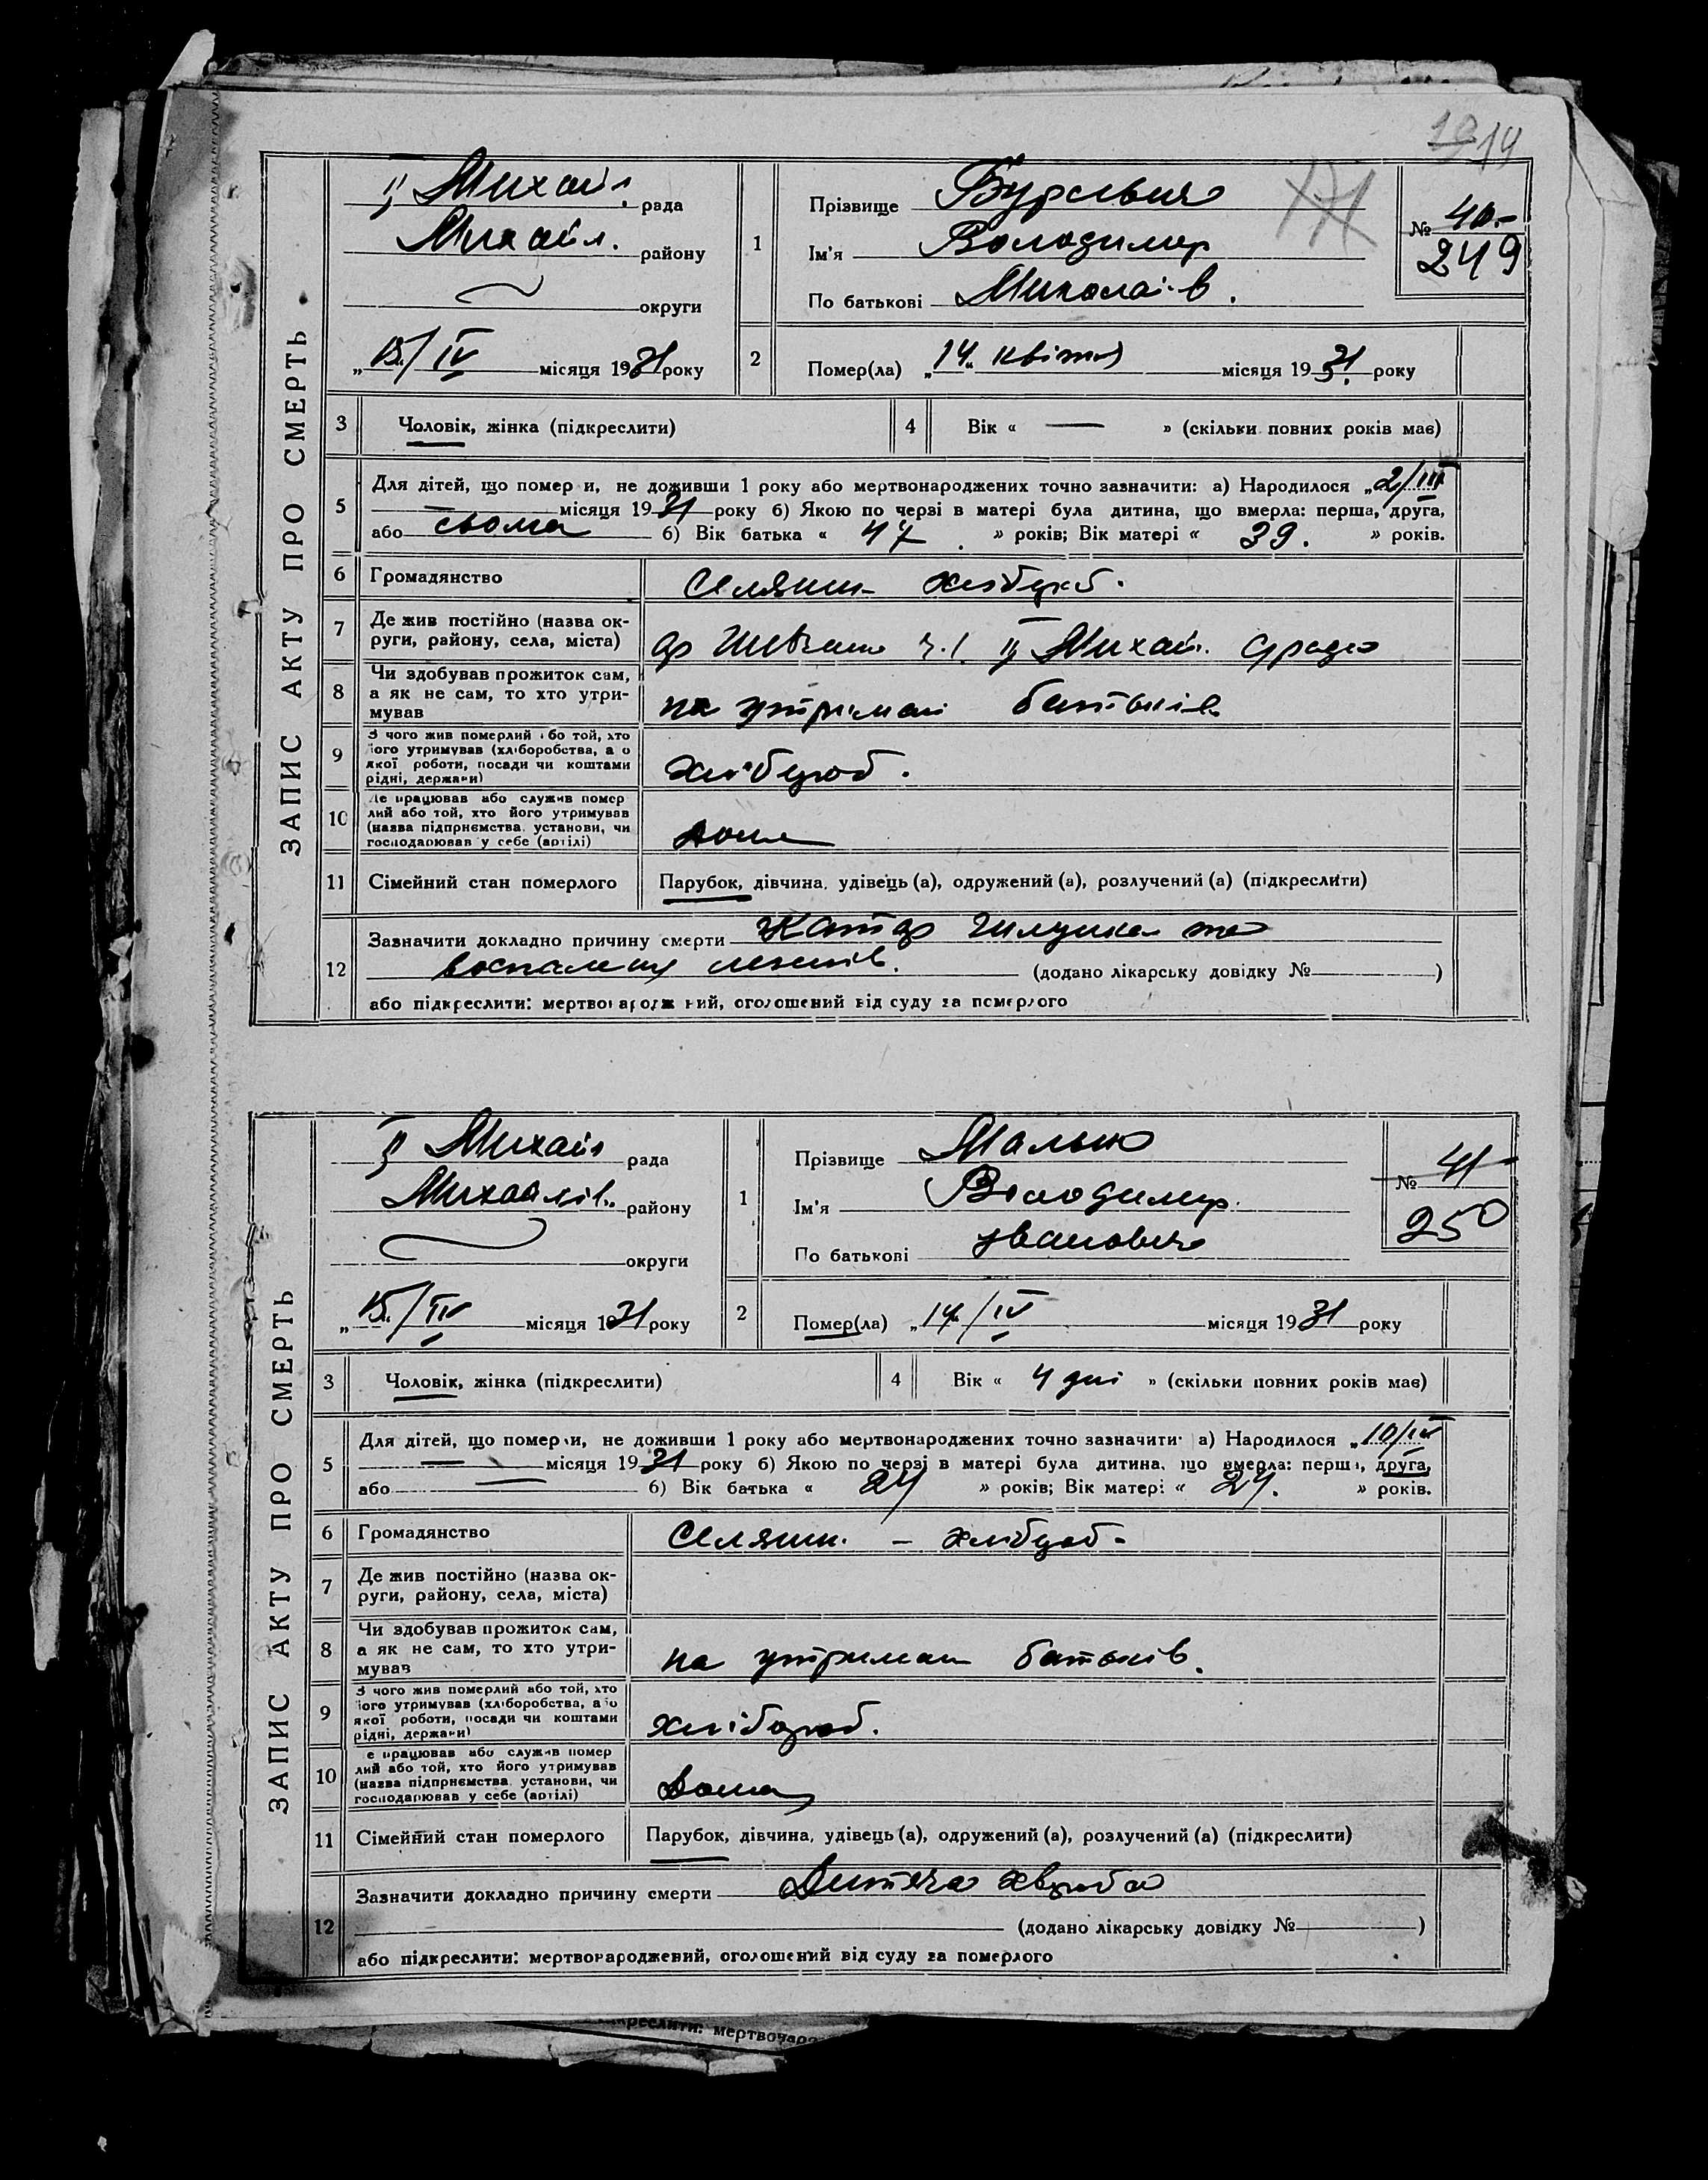 19 14
ЗАПИС АКТУ ПРО СМЕРТЬ
II Михайл. рада
Михайл. району
округи
„15./IV місяця 1931 року
1
Прізвище
Ім'я Володимир
По батькові Миколаїв.
№ 40
249
2
Помер(ла) „14“ квітня місяця 1931 року
3 Чоловік, жінка (підкреслити)
4 Вік « — » (скільки повних років має)
5 Для дітей, що помер и, не доживши 1 року або мертвонароджених точно зазначити: а) Народилося „2/III
місяця 1931 року б) Якою по черзі в матері була дитина, що вмерла: перша, друга,
або сьома б) Вік батька « 47 » років; Вік матері « 39. » років.
6 Громадянство Селянин хлібороб.
7 Де жив постійно (назва ок-
руги, району, села, міста) II Михай.
8 Чи здобував прожиток сам,
а як не сам, то хто утри-
мував на утриман батьків
9 З чого жив померлий або той, хто
його утримував (хліборобства, а о
якої роботи, посади чи коштами
рідні, держави) хлібороб.
10 Де працював або служив помер
лий або той, хто його утримував
(назва підприємства, установи, чи
господарював у себе (артілі) дома
11 Сімейний стан померлого Парубок, дівчина, удівець (а), одружений (а), розлучений (а) (підкреслити)
12 Зазначити докладно причину смерти та
легенів. (додано лікарську довідку № )
або підкреслити: мертвонароджений, оголошений від суду за померлого
ЗАПИС АКТУ ПРО СМЕРТЬ
II Михайл рада
Михайлів. району
округи
„15./IV місяця 1931 року
1
Прізвище Малько
Ім'я Володимир
По батькові Іванович
№ 41
250
2
Помер(ла) „14/IV місяця 1931 року
3 Чоловік, жінка (підкреслити)
4 Вік « 4 дні » (скільки повних років має)
5 Для дітей, що померли, не доживши 1 року або мертвонароджених точно зазначити: а) Народилося „10/IV
місяця 1931 року б) Якою по черзі в матері була дитина, що вмерла: перша, друга,
або — б) Вік батька « 24 » років; Вік матері « 24. » років.
6 Громадянство Селянин. – хлібороб-
7 Де жив постійно (назва ок-
руги, району, села, міста)
8 Чи здобував прожиток сам,
а як не сам, то хто утри-
мував на утриман батьків.
9 З чого жив померлий або той, хто
його утримував (хліборобства, або
якої роботи, посади чи коштами
рідні, держави) хлібороб.
10 е працював або служив помер
лий або той, хто його утримував
(назва підприємства, установи, чи
господарював у себе (артілі) дома
11 Сімейний стан померлого Парубок, дівчина, удівець (а), одружений (а), розлучений (а) (підкреслити)
12 Зазначити докладно причину смерти Дитяча хвороба
(додано лікарську довідку № )
або підкреслити: мертвонароджений, оголошений від суду за померлого
креслити: мертвонаро